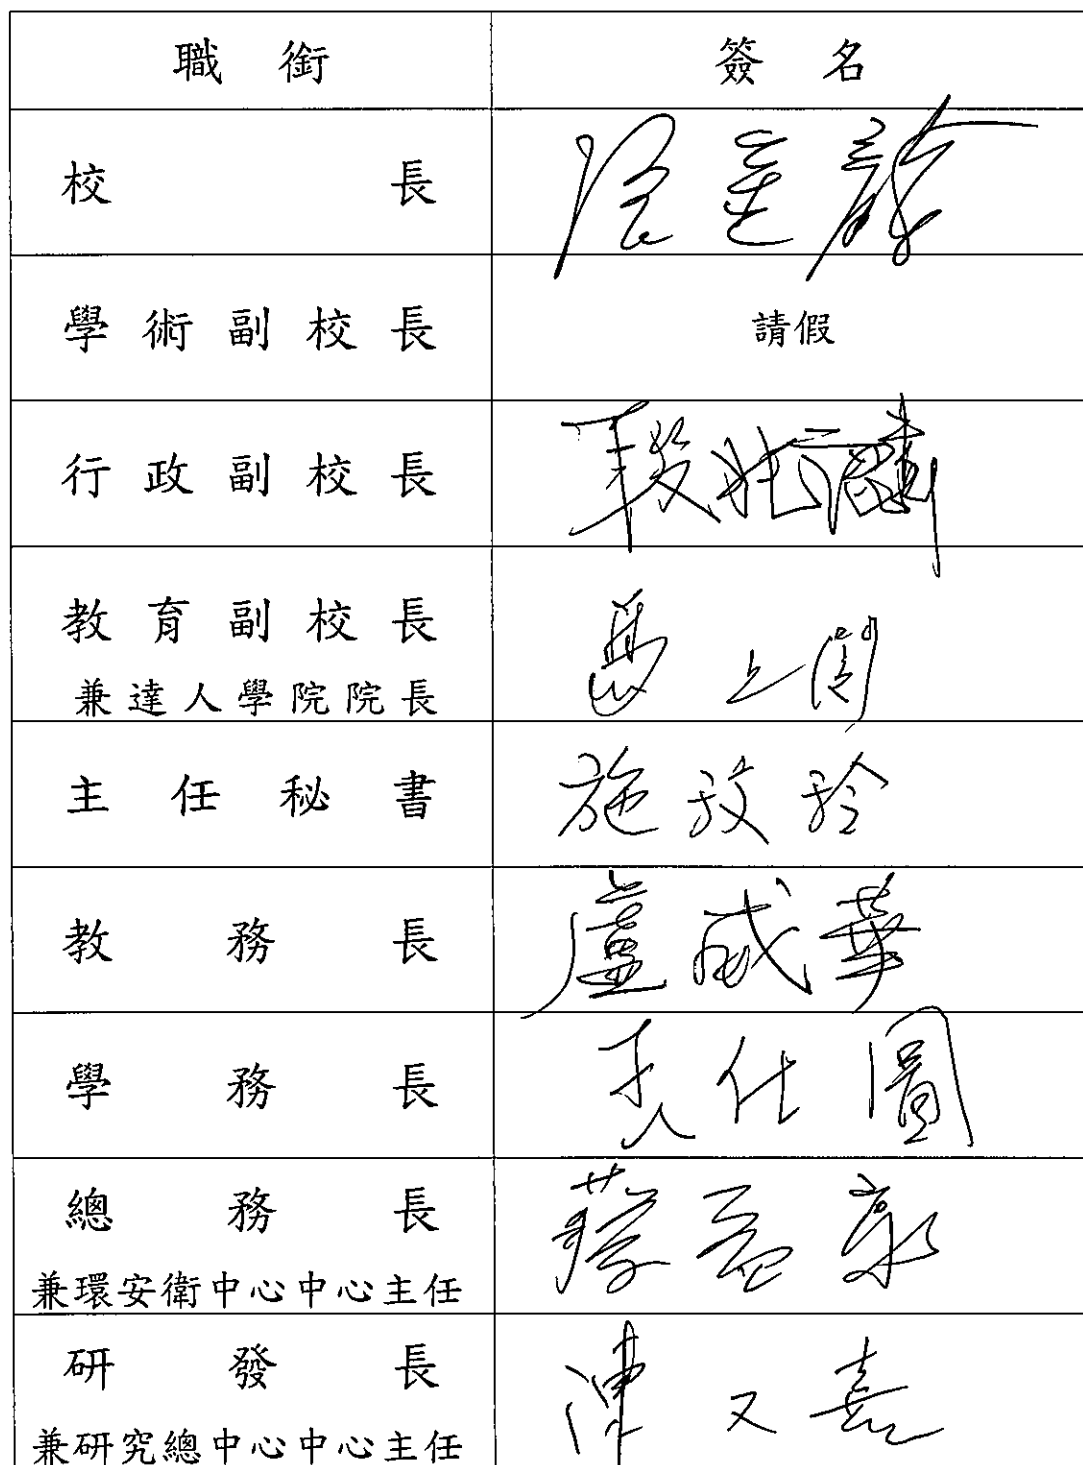 職銜 簽名
校長
學術副校長 請假
行政副校長
教育副校長
兼達人學院院長 上
主任秘書 施玫玲
教務長 盧威華
學務長 仕圖
總務長 蔡
兼環安衛中心中心主任
研發長 陳又嘉
兼研究總中心中心主任